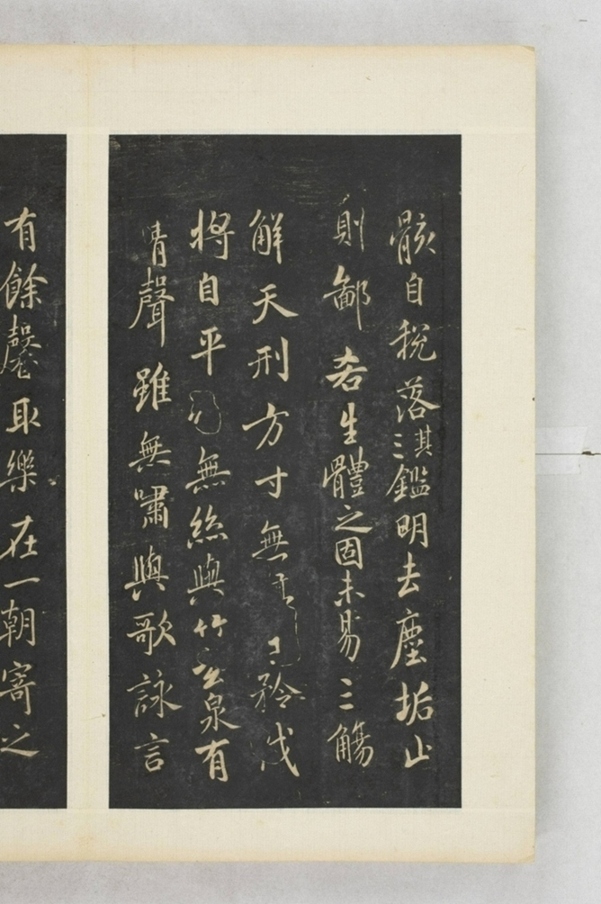 骸自税落其三鑑明去塵垢止
則鄙吝生體之固未易三觴
解天刑方寸無矜伐
將自平無絲與竹玄泉有
清聲雖無嘯與歌詠言
有餘馨取樂在一朝寄之